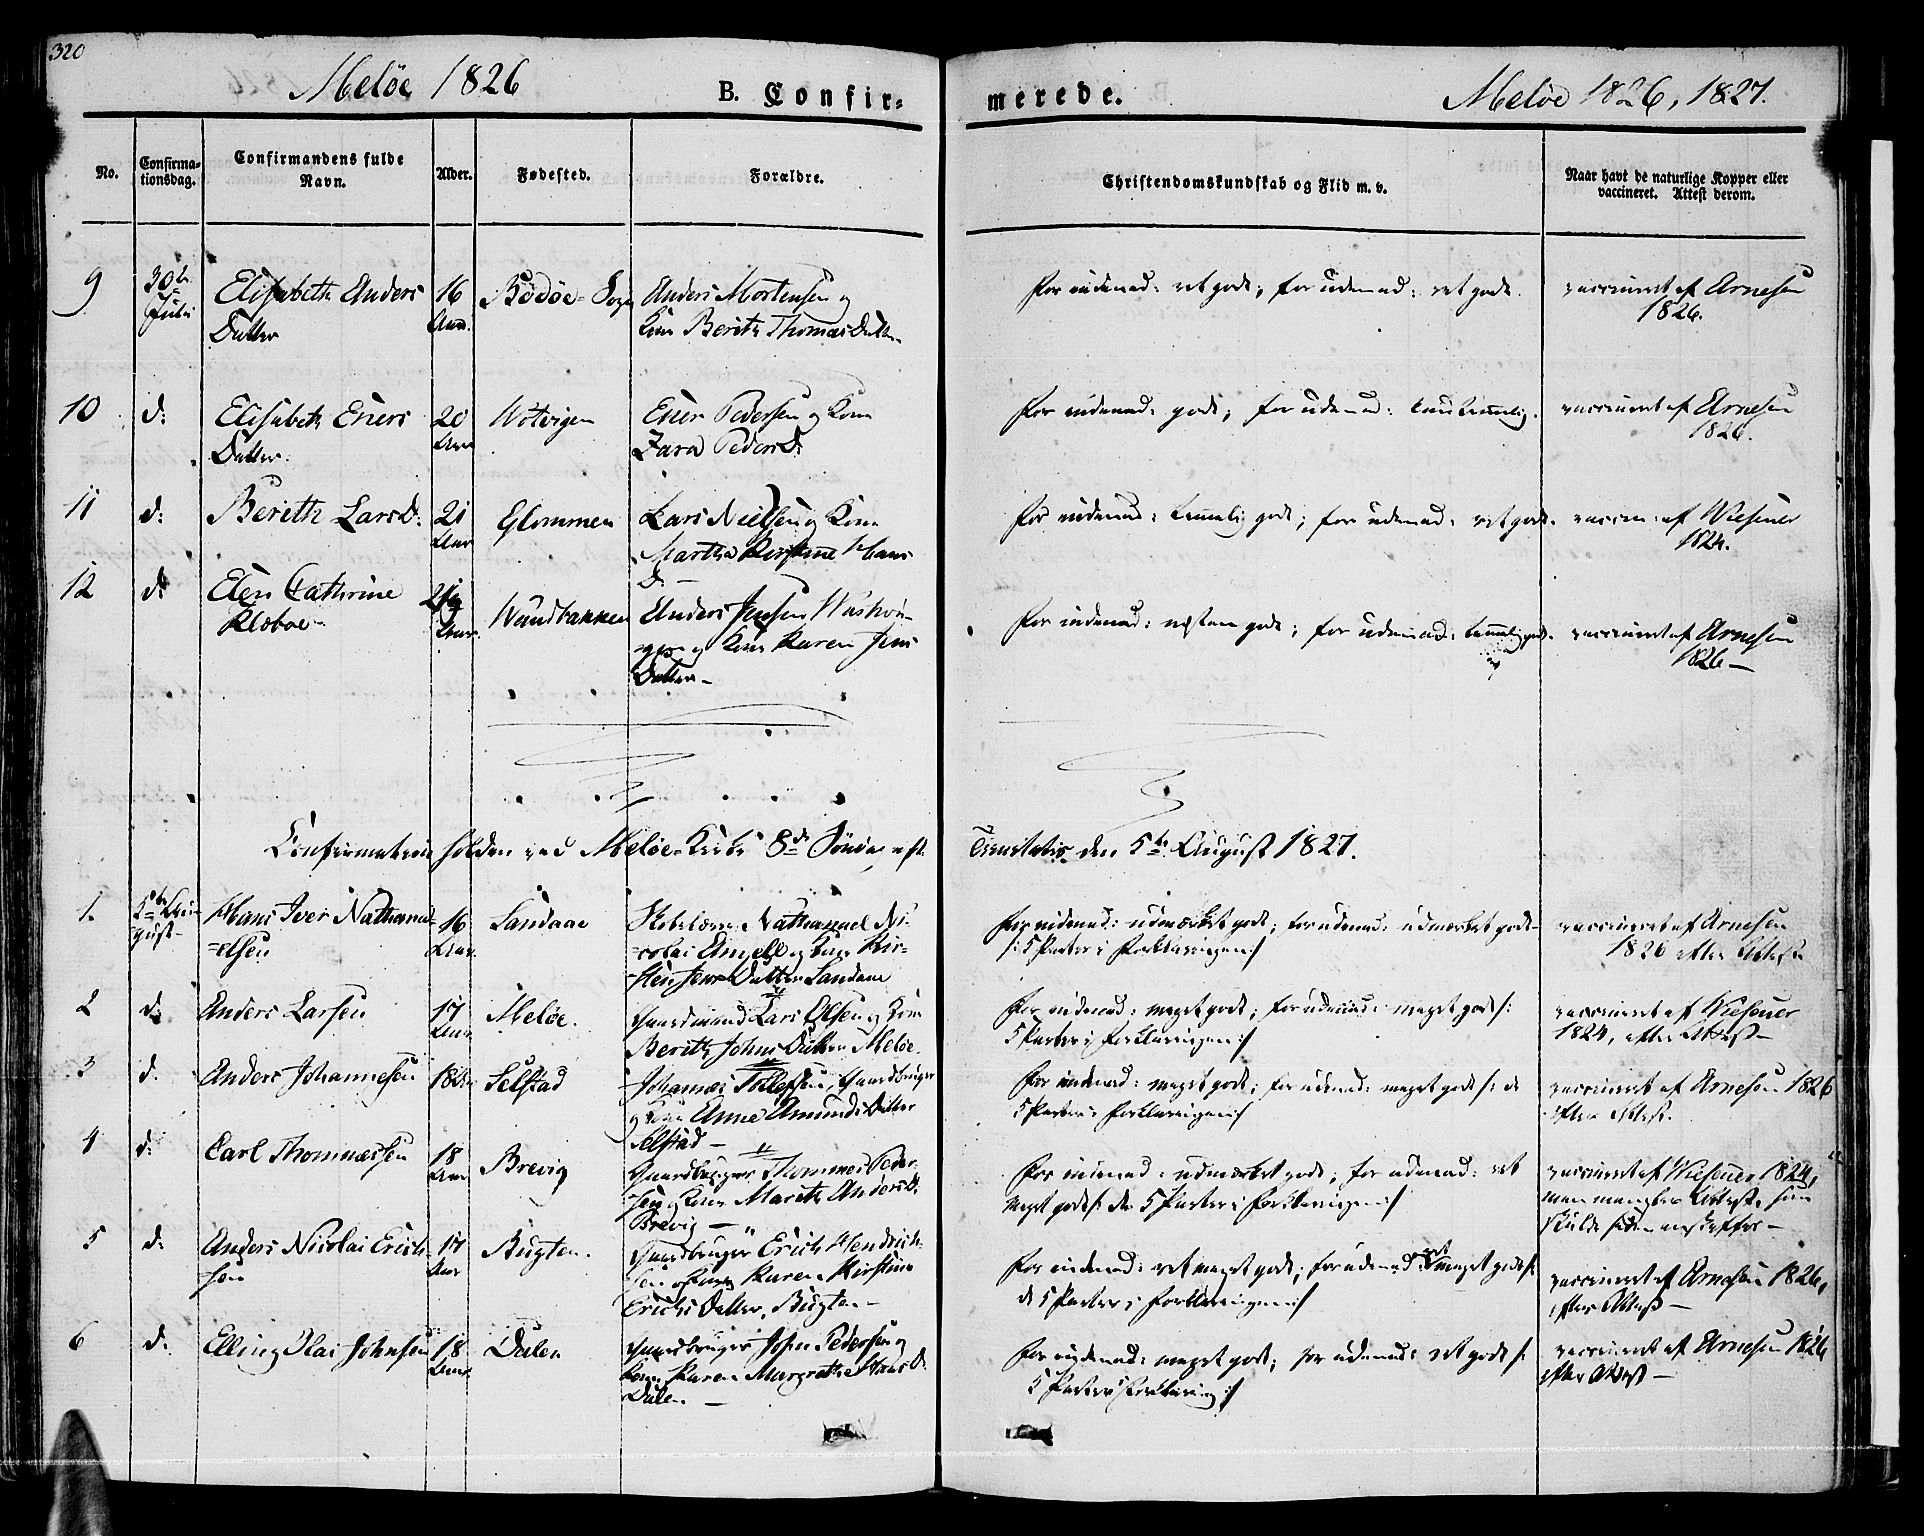 320
Meløe 1826
B. Confir=
merede.
Meløe 1826, 1827.
No.
Confirma-
tionsdag.
Confirmandens fulde
Navn.
Alder.
Fødested.
Forældre.
Christendomskundskab og Flid m. v.
Naar havt de naturlige Kopper eller
vaccineret. Attest derom.
9
30te
Juli
Elisabeth Anders
Datter
16
Aar.
Bodøe Sogn
Anders Mortensen og
Kone Berith Thomas Datter
for indenad: ret godt; for udenad: ret godt.
vaccineret af Arnesen
1826.
10
d:
Elisabeth Eners
Datter.
20
Aar
Wotvigen
Ener Pedersen og Kone
Zara PedersD.
for indenad: godt; for udenad: temmelig.
vaccineret af Arnesen
1826.
11
d:
Berith LarsD:
21
Aar
Glommen
Lars Nielsen og Kone
Martha Kirstine Hans
D.
for indenad: temmelig godt; for udenad: ret godt.
vaccin: af Wiesener
1824.
12
d:
Elen Cathrine
Kloboe
Aar.
Wundbakken
Anders Jensen
og Kone Karen Jens
Datter
for indenad: næsten godt; for udenad: temmelig godt.
vaccineret af Arnesen
1826 —
Confirmation holden ved Meløe Kirke 8de Søndag eft.
Trinitatis den 5te August 1827.
1.
5te Au-
gust
Hans Iver Nathana-
-elsen
16
Aar.
Sandaae
Nathanael Ni-
-colai Angell og Kone Kir-
-sten Jens Datter Sandaae
for indenad: udmærket godt; for udenad: udmærket godt
/: 5 Parter i Forklaringen:/
vaccineret af Arnesen
1826 efter Attest
2
d:
Anders Larsen
17
Aar
Meløe.
Gaardmand Lars Olsen og Kone
Berith Johns Datter Meløe.
for indenad: meget godt; for udenad: meget godt /:
5 Parter i Forklaringen:/
vaccineret af Wiesener
1824, efter Attest
3
d.
Anders Johannesen
18
Selstad
Johannes Tollefsen, Gaardbruger
og Kone Anne Amunds Datter
Selstad —
for indenad: meget godt; for udenad: meget godt /: de
5 Parter i Forklaringen:/
vaccineret af Arnesen 1826
efter Attest.
4
d:
Carl Thomassen
18
Aar
Brevig
Gaardbruger Thomas Peder-
sen og Kone Marith AndersD.
Brevig —
for indenad: udmærket godt; for udenad: ret
meget godt /: de 5 Parter i Forklaringen:/
vaccineret af Wiesener 1824,
men mangler Attest, som
skulde siden anskaffes —
5
d.
Anders Nicolai Erich-
sen
17
Aar
Bugten.
Gaardbruger Erich Hendrich-
sen og Kone Karen Kirstine
Erichs Datter, Bugten —
for indenad: ret meget godt; for udenad: ret meget godt /:
de 5 Parter i Forklaringen:/
vaccineret af Arnesen 1826,
efter Attest —
6
d.
Elling Olai Johnsen
18
Aar
Dalen
Gaardbruger John Pedersen og
Kone Karen Margrethe HansD.
Dalen —
for indenad: meget godt; for udenad: ret godt /:
5 Parter i Forklaring:/
vaccineret af Arnesen 1826
efter Attest —